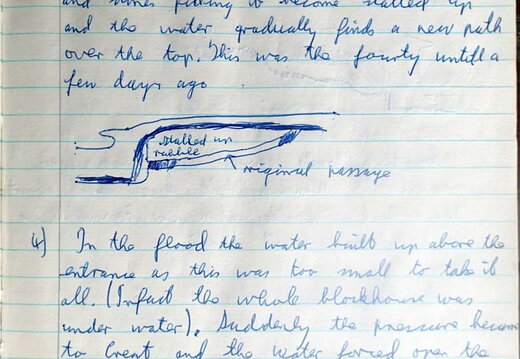 and the water gradually finds a new path
over the top. This was the fourty untill a
few days ago.
stalled up
rubble
original passage
4) In the flood the water built up above the
entrance as this was too small to take it
all. (Infact the whole blockhouse was
under water). Suddenly the pressure became
to Great and the water forced open the